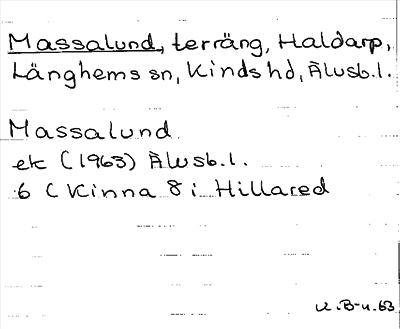 Massalund, terräng, Haldarp,
Länghems sn, Kinds hd, Älvsb.l.
Massalund
ek (1963) Älvsb.l.
6 C Kinna 8 i Hillared
K.B-u.63